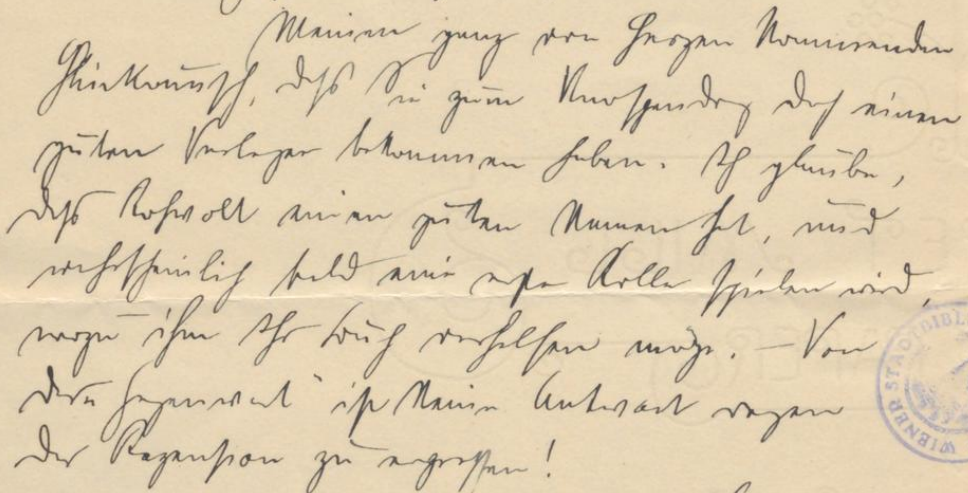 Meinen ganz von Herzen kommenden
Glückwunsch, daß Sie zum doch einen
guten Verleger bekommen haben. Ich glaube,
daß Rohwolt einen guten Namen hat, und
wahrscheinlich bald eine erste Rolle spielen wird,
wozu ihm Ihr Buch verhelfen möge. – Von
der Gegenwart ist keine Antwort wegen
der Rezension zu erpressen!
WIENER STADTBIBL